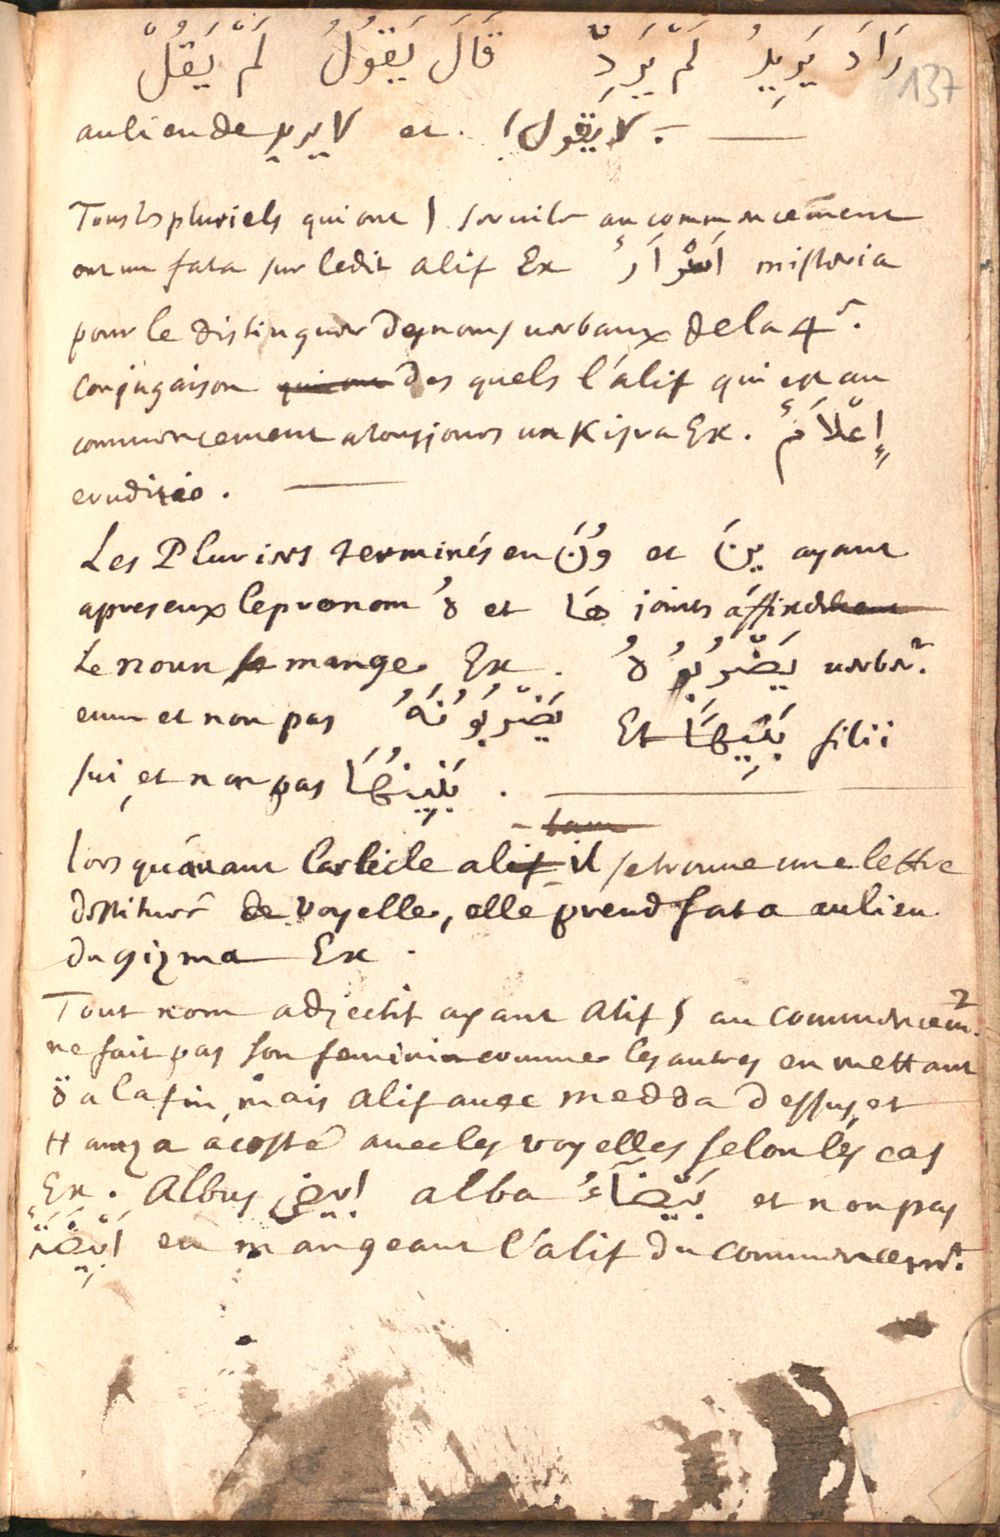 رَادَ يَرِيدُ لَمْ يَرِدْ قَالَ يَقُولُ لَمْ يَقُلْ
137
au lieu de لا يريد et لا يَقُول.
Tous les pluriels qui ont ا servile au commencement
ont un fata sur ledit alif Ex أَسْرَارٌ misteria
pour le distinguer des noms verbaux de la 4ᵉ.
conjugaison des quels l'alif qui est au
commencement a tousjours un Kisra Ex. إِعْلَامٌ
eruditio.
Les Pluriers terminés en وُنَ et ينَ ayant
apres eux le pronom هُ et هَا joints
Le noun se mange Ex. يَضْرِبُوُهُ verber.
eum et non pas يَضْرِبُوُنَهُ Et بَنِيهَا filii
sui, et non pas بَنِينهَا.
Lors qu'avant l'article alif il se trouve une lettre
destituee de voyelle, elle prend fata au lieu
du gizma Ex.
Tout nom adjectif ayant alif ا au commencem.
ne fait pas son feminin comme les autres en mettant
ة a la fin mais alif avec medda dessus, et
Hamza a costé avec les voyelles selon les cas
Ex. Albus ابيض alba بَيْضَآءُ et non pas
أَبْيَضَةٌ en mangeant l'alif du commencemt.